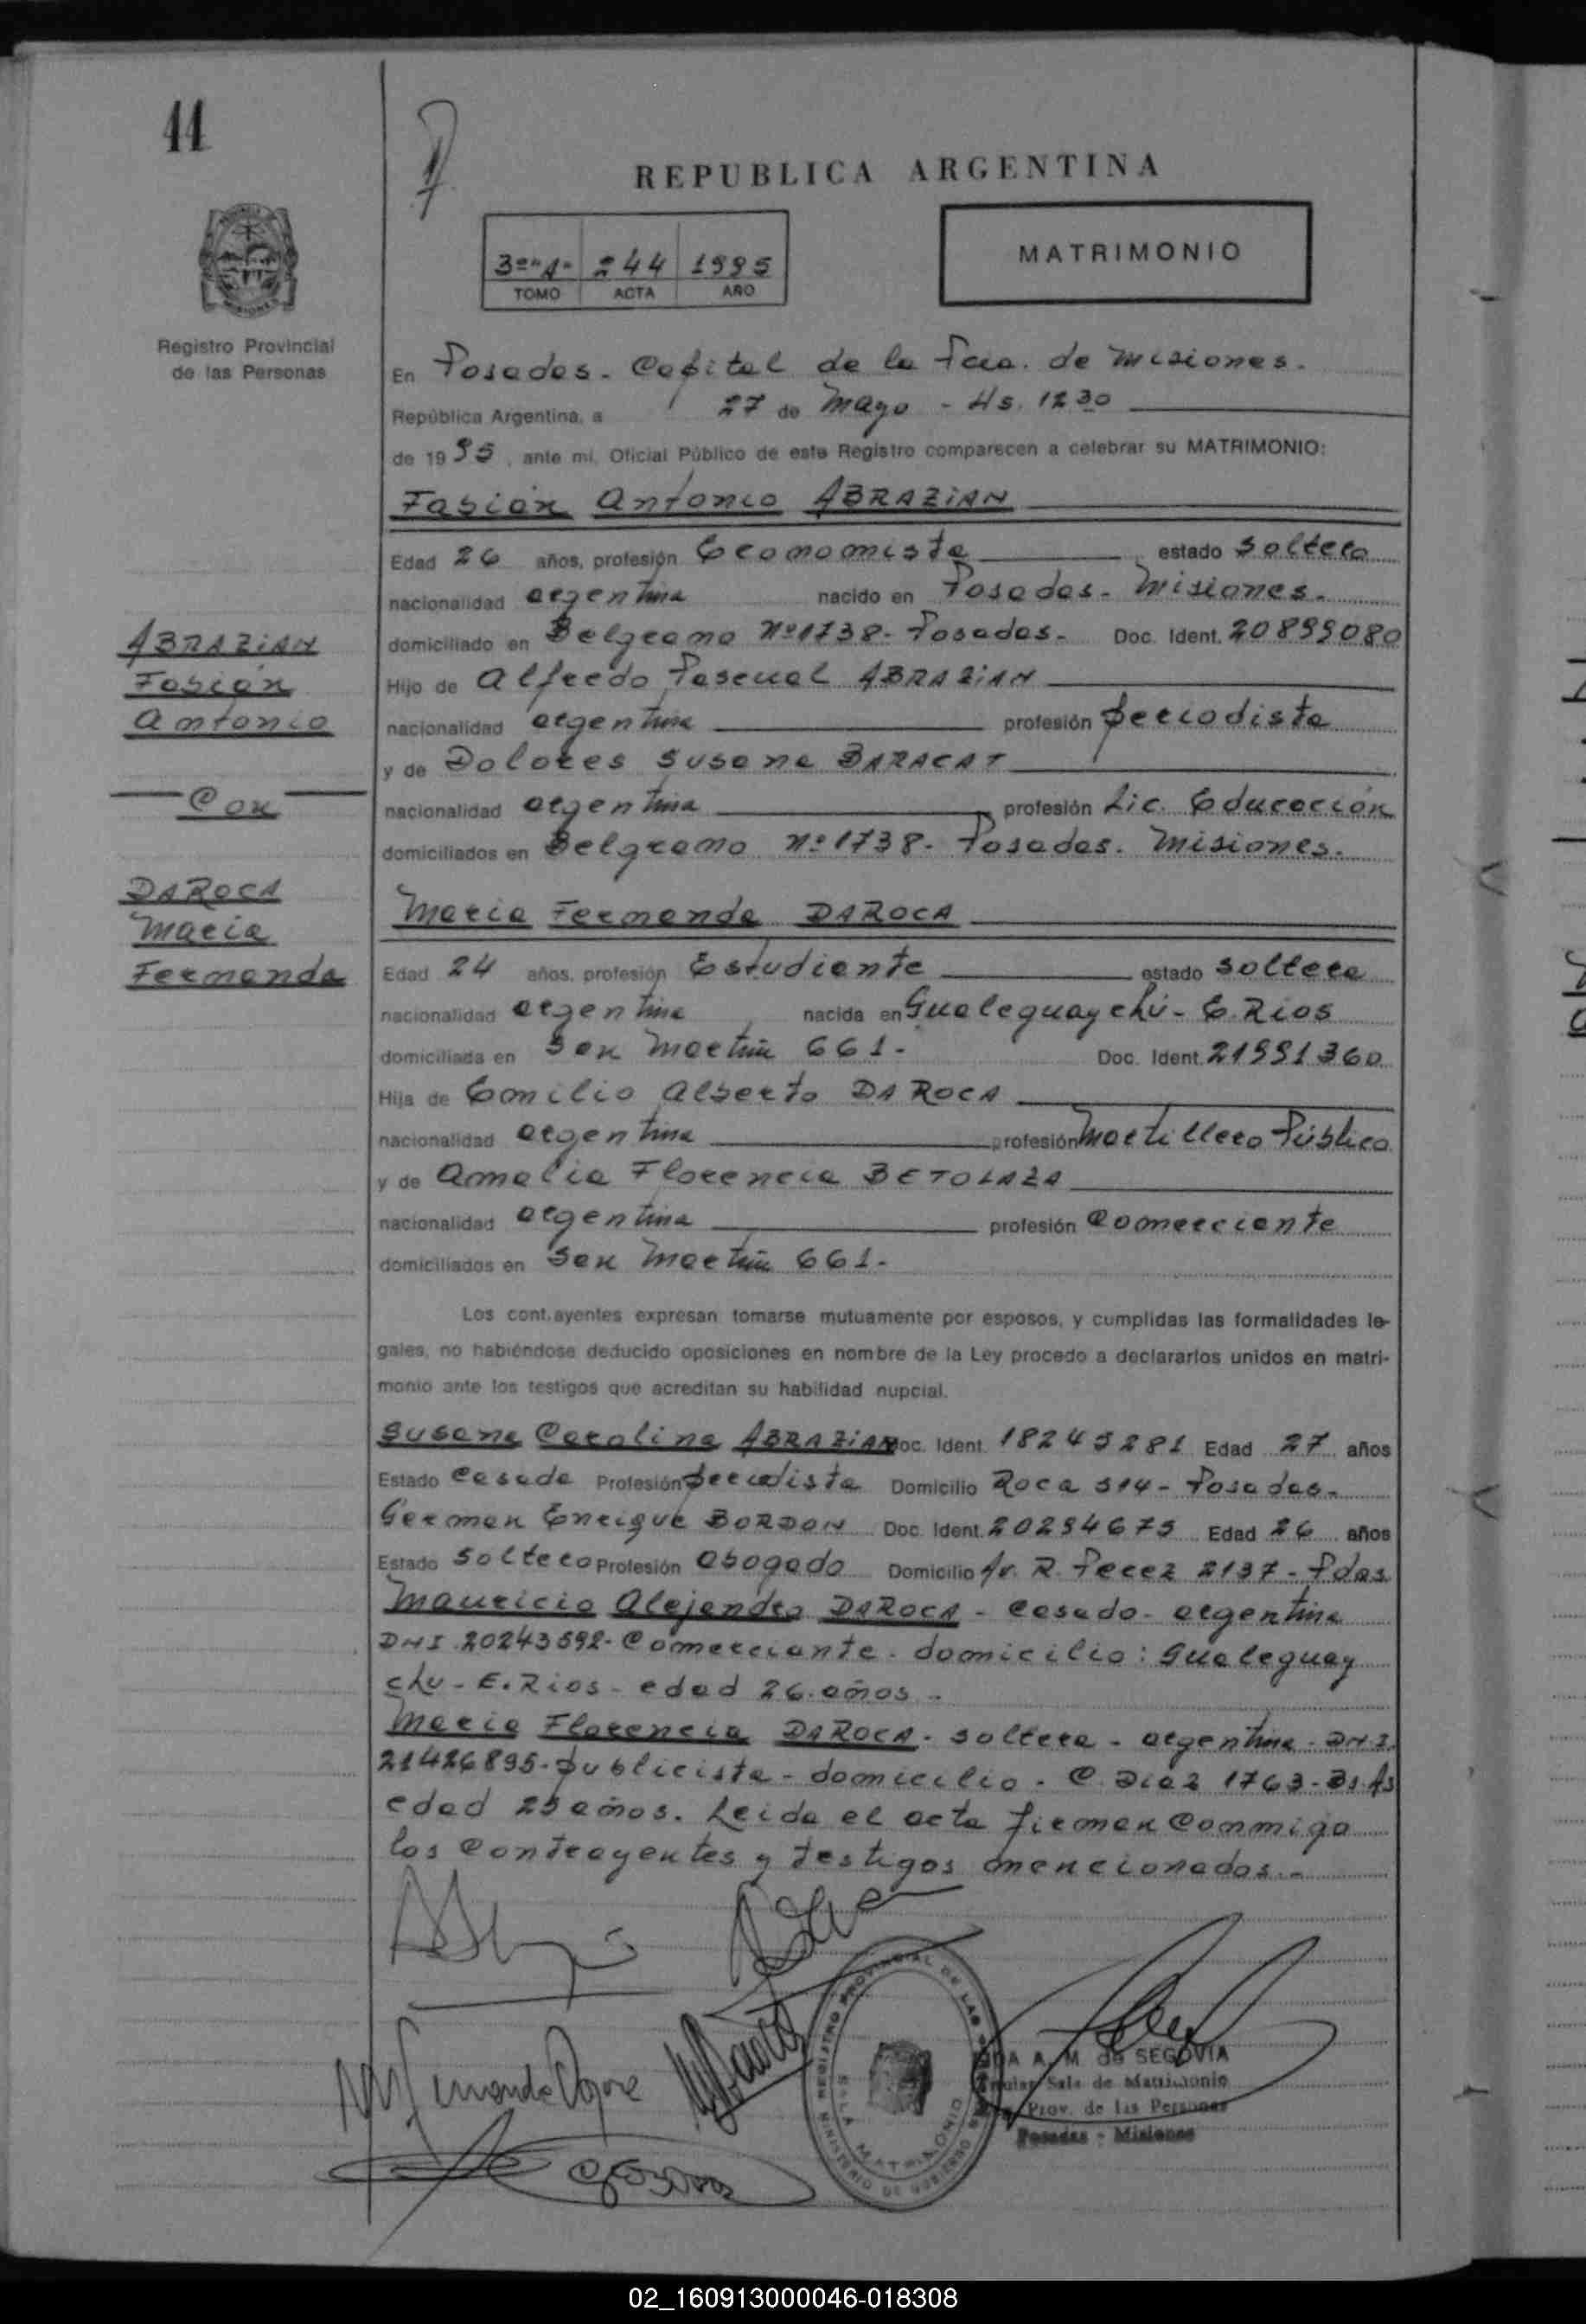 11
REPUBLICA ARGENTINA
3º "A" 244 1995
TOMO ACTA AÑO
MATRIMONIO
Registro Provincial
de las Personas
En Posadas - Capital de la Pcia. de Misiones.
República Argentina, a 27 de Mayo - Hs. 12 30
de 1995, ante mí, Oficial Público de este Registro comparecen a celebrar su MATRIMONIO:
Fabián Antonio ABRAZIAN
Edad 26 años, profesión Economista estado soltero
nacionalidad argentina nacido en Posadas - Misiones.
domiciliado en Belgrano Nº 1738 - Posadas - Doc. Ident. 20899080
Hijo de Alfredo Pascual ABRAZIAN
nacionalidad argentina profesión periodista
y de Dolores Susana BARACAT
nacionalidad argentina profesión Lic. Educación
domiciliados en Belgrano Nº 1738 - Posadas. Misiones.
ABRAZIAN
Fabián
Antonio
Con
DAROCA
María
Fernanda
María Fernanda DAROCA
Edad 24 años, profesión Estudiante estado soltera
nacionalidad argentina nacida en Gualeguaychú - E. Rios
domiciliada en San Martín 661 - Doc. Ident. 21991360
Hija de Emilio Alberto DAROCA
nacionalidad argentina profesión Martillero Público
y de Amalia Florencia BETOLAZA
nacionalidad argentina profesión Comerciante
domiciliados en San Martín 661 -
Los cont.ayentes expresan tomarse mutuamente por esposos, y cumplidas las formalidades le-
gales, no habiéndose deducido oposiciones en nombre de la Ley procedo a declararlos unidos en matri-
monio ante los testigos que acreditan su habilidad nupcial.
Susana Carolina ABRAZIAN Doc. Ident. 18245281 Edad 27 años
Estado casada Profesión periodista Domicilio Roca 514 - Posadas -
German Enrique BORDON Doc. Ident. 20294675 Edad 26 años
Estado soltero Profesión abogado Domicilio Av. R. Perez 2137 - Pdas
Mauricio Alejandro DAROCA - casado - argentina
DNI 20243592 - Comerciante - domicilio: Gualeguay
chu - E. Rios - edad 26 años -
María Florencia DAROCA - soltera - argentina - DNI.
21426895 - publicista - domicilio - C. Diaz 1763 - Bs. As
edad 25 años. Leida el acta firman Conmigo
los Contrayentes y testigos mencionados. -
REGISTRO PROVINCIAL DE LAS
MINISTERIO DE GOBIERNO
SALA MATRIMONIO
A. M. de SEGOVIA
Titular Sala de Matrimonio
Prov. de las Personas
Posadas - Misiones
02_160913000046-018308